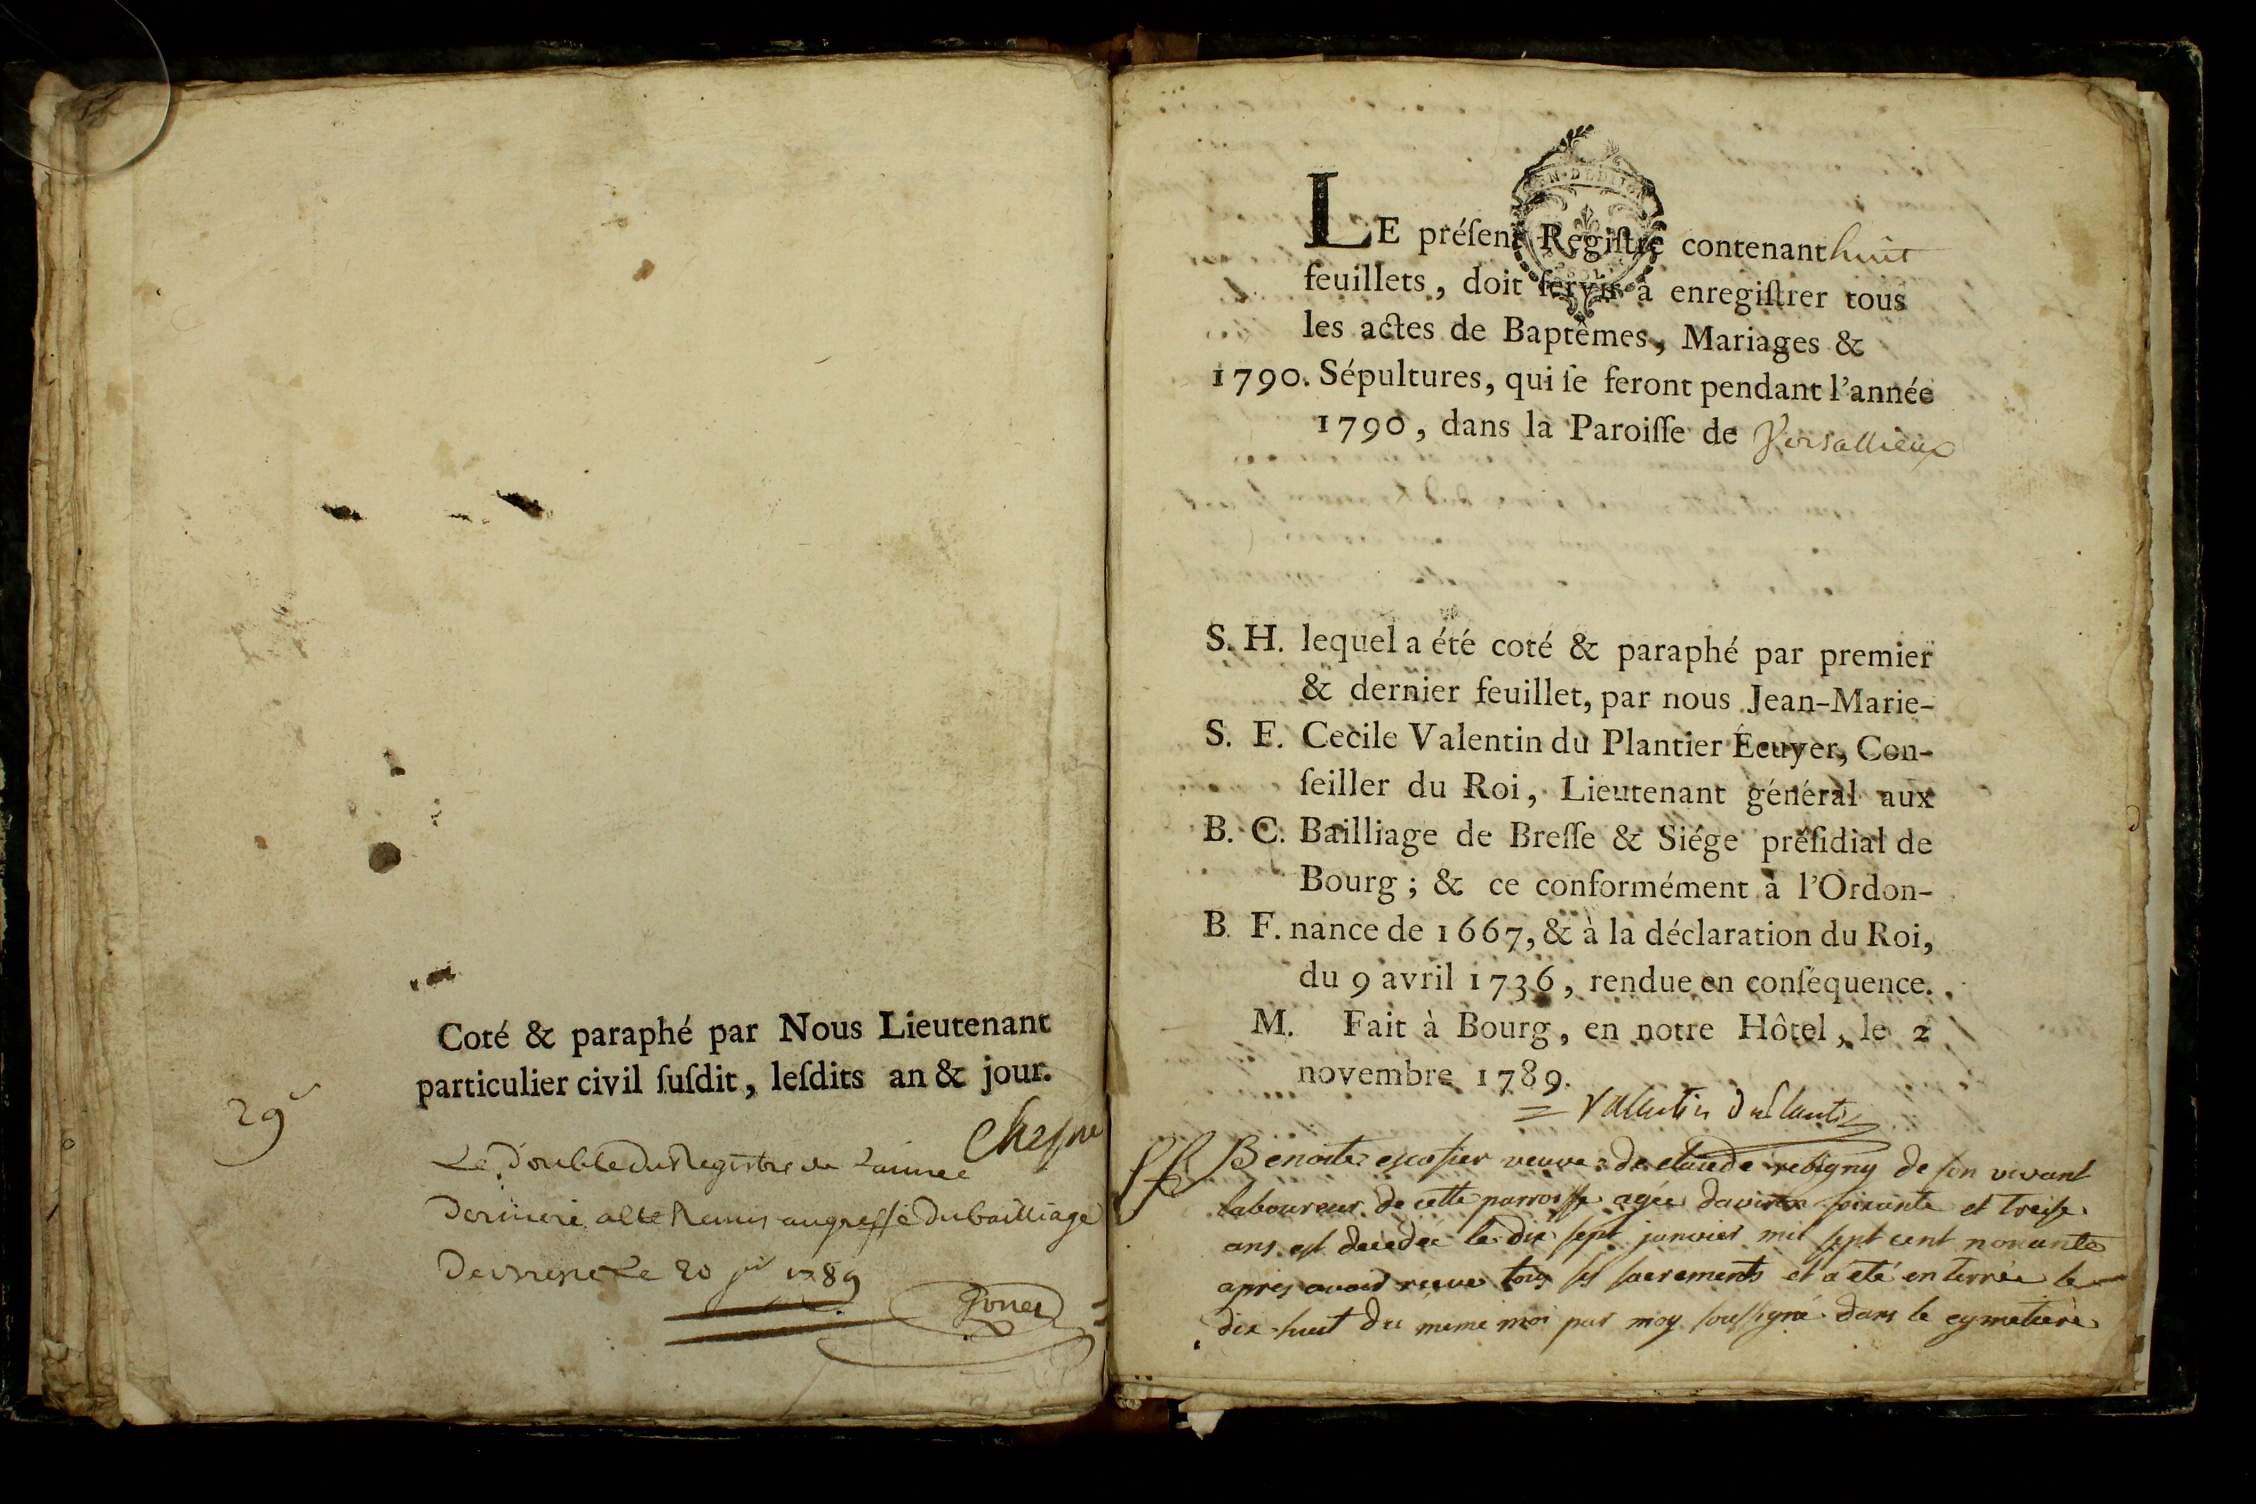 Coté & paraphé par Nous Lieutenant
particulier civil ſuſdit, leſdits an & jour.
29e
Le Double du Registre de L'année
Derniere a été Remis au greffe Du bailliage
De 20 1789
LE préſent Regiſtre contenant huit
feuillets, doit ſervir à enregiſtrer tous
les actes de Baptêmes, Mariages &
1790. Sépultures, qui ſe feront pendant l'année
1790, dans la Paroiſſe de Versallieux
S. H. lequel a été coté & paraphé par premier
& dernier feuillet, par nous Jean-Marie-
S. F. Cecile Valentin du Plantier Écuyer, Con-
ſeiller du Roi, Lieutenant général aux
B. C. Bailliage de Breſſe & Siége préſidial de
Bourg; & ce conformément à l'Ordon-
B. F. nance de 1667, & à la déclaration du Roi,
du 9 avril 1736, rendue en conſéquence.
M. Fait à Bourg, en notre Hôtel, le 2
novembre 1789.
Valentin duPlantier
Benoite escofier veuve de claude rebigny de son vivant
laboureur de cette parroisse agée daviron soixante et treise
ans est decedée le dix sept janvier mil sept cent nonante
apres avoir reçue tous ses sacrements et a eté enterrée le
dix-huit du meme moi par moy soussigné dans le cymetiere